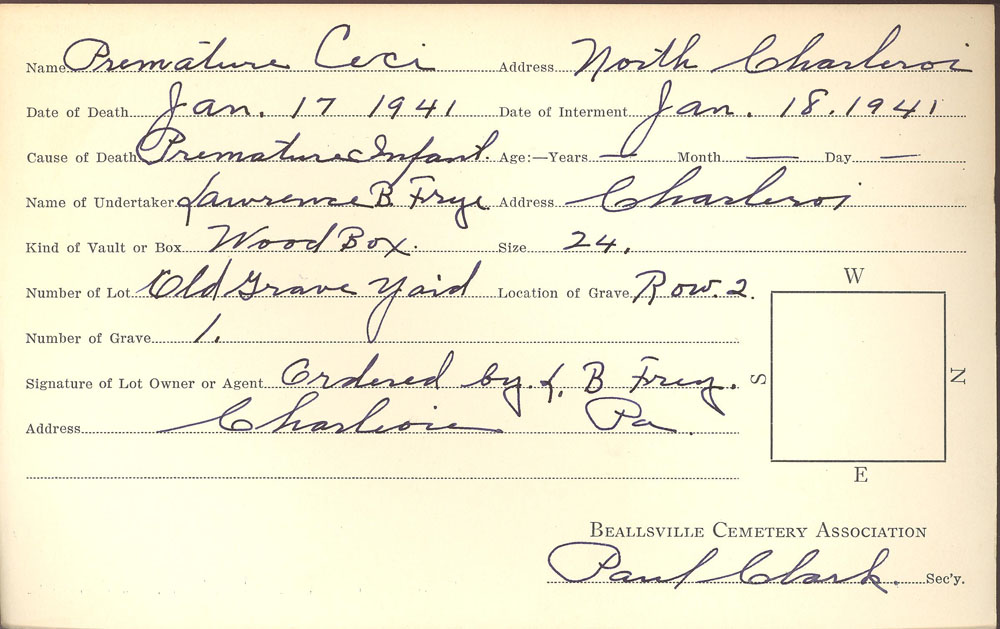 Name Premature Ceci Address North Charleroi
Date of Death Jan. 17 1941 Date of Interment Jan. 18. 1941
Cause of Death Premature Infant. Age:—Years — Month — Day —
Name of Undertaker Lawrence B Frye Address Charleroi
Kind of Vault or Box Wood Box. Size 24.
Number of Lot Old Grave Yard Location of Grave Row. 2.
Number of Grave 1.
Signature of Lot Owner or Agent Ordered by. L. B Frey.
Address Charleroi Pa.
W
S
N
E
BEALLSVILLE CEMETERY ASSOCIATION
Paul Clark. Sec'y.